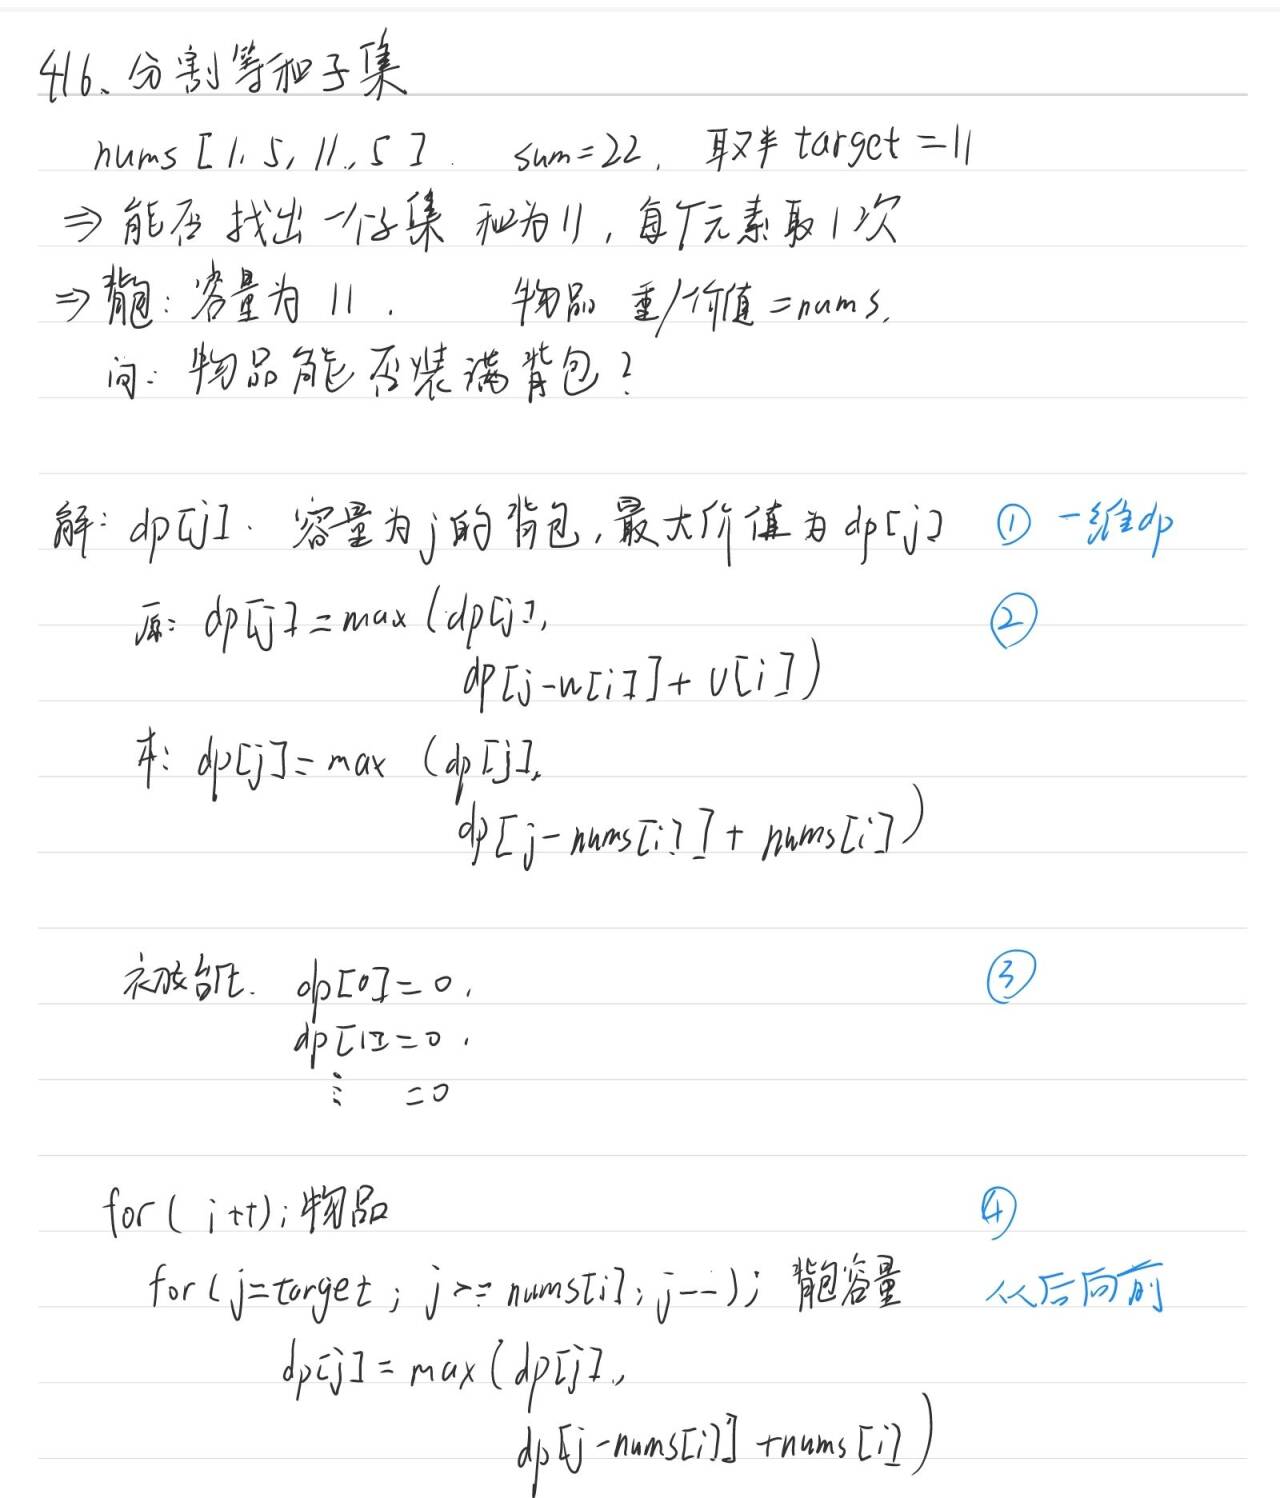 416、分割等和子集
nums [1, 5, 11, 5]. sum=22, 取半 target = 11
⇒ 能否 找出 一个子集 和为11, 每个元素取1次
⇒ 背包: 容量为 11. 物品 重/价值 = nums.
问: 物品能否装满背包?
解: dp[j]. 容量为j的背包, 最大价值为 dp[j] ① 一维dp
原: dp[j] = max (dp[j], ②
dp[j-w[i]] + v[i])
本: dp[j] = max (dp[j],
dp[j-nums[i]] + nums[i])
初始化. dp[0] = 0, ③
dp[1] = 0.
⋮ = 0
for( i++); 物品 ④
for(j=target; j>=nums[i]; j--); 背包容量 从后向前
dp[j] = max(dp[j],
dp[j-nums[i]] + nums[i])